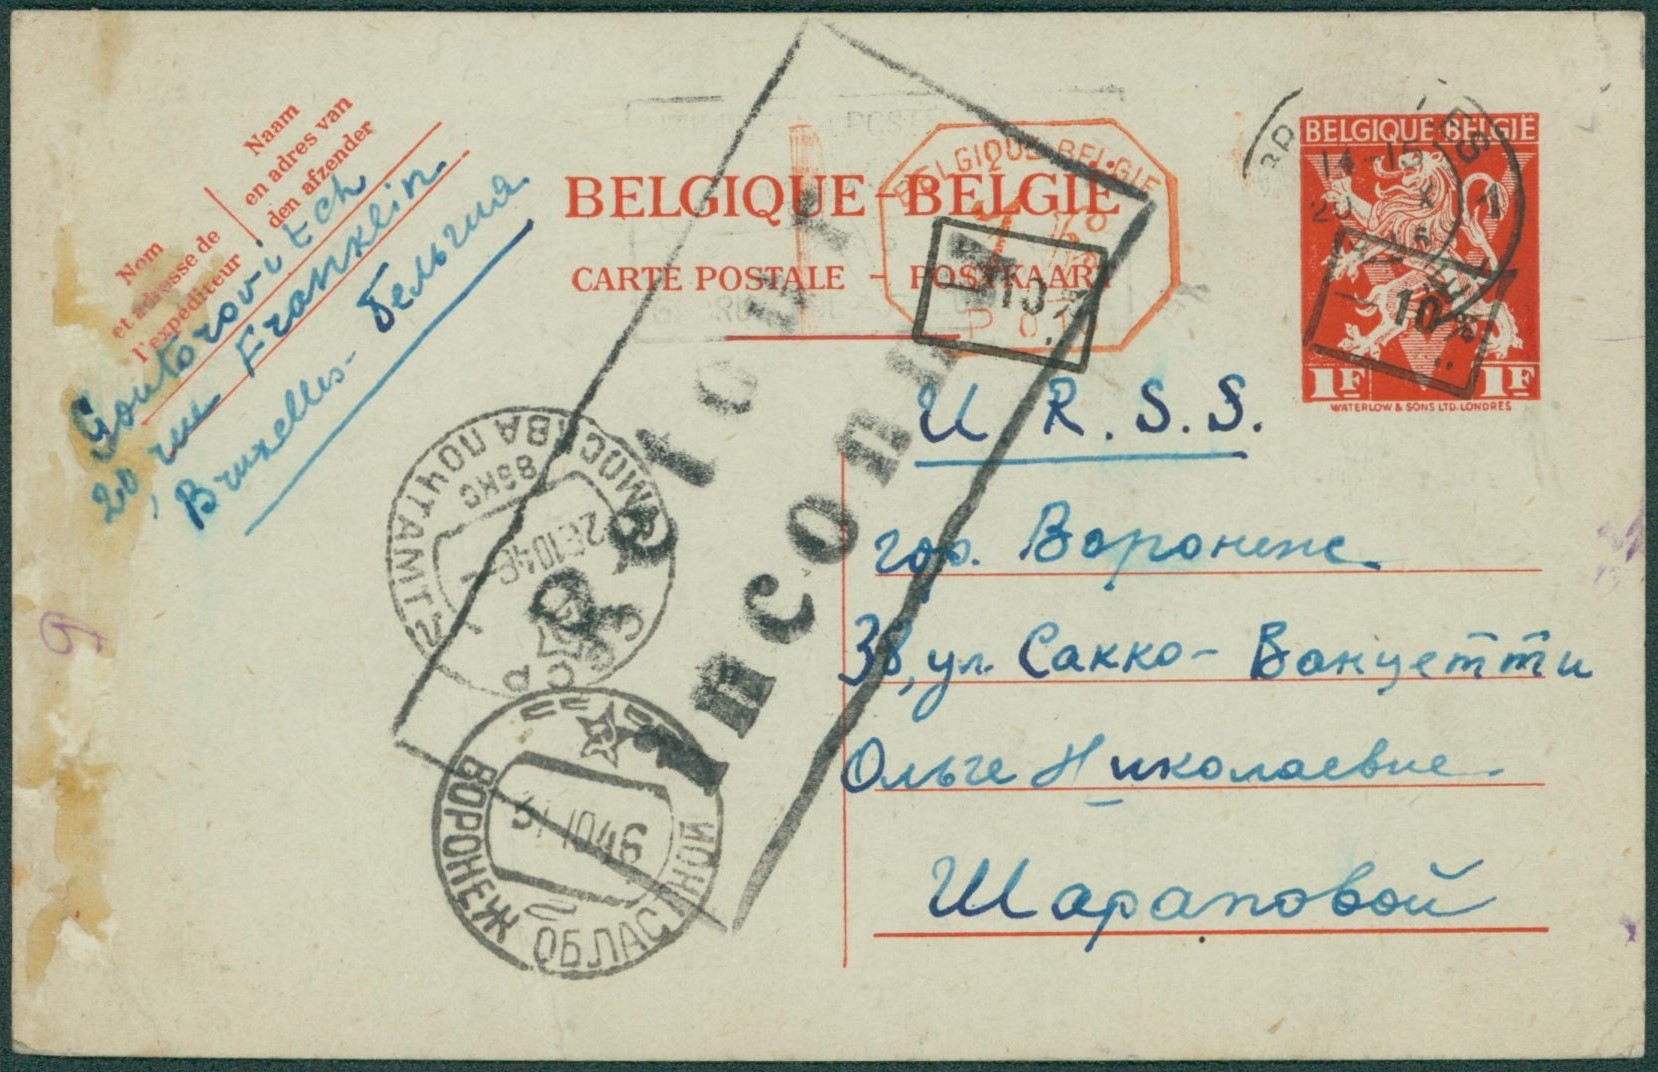 Naam
en adres van
den afzender
Nom
et adresse de
l'expéditeur
Goutorovitch
20, rue Franklin
Bruxelles - Бельгия
BELGIQUE-BELGIË
CARTE POSTALE - POSTKAART
BELGIQUE-BELGIE
P 0
-10%
BELGIQUE-BELGIË
14-15
20 X
-10%
1F 1F
WATERLOW & SONS LTD. LONDRES
Retour
Inconnu
U.R.S.S.
гор. Воронеж
38, ул. Сакко-Ванцетти
Ольге Николаевне
Шараповой
МОСКВА ПОЧТАМТ
СССР
ВОРОНЕЖ ОБЛАСТНОЙ
31 1046
9